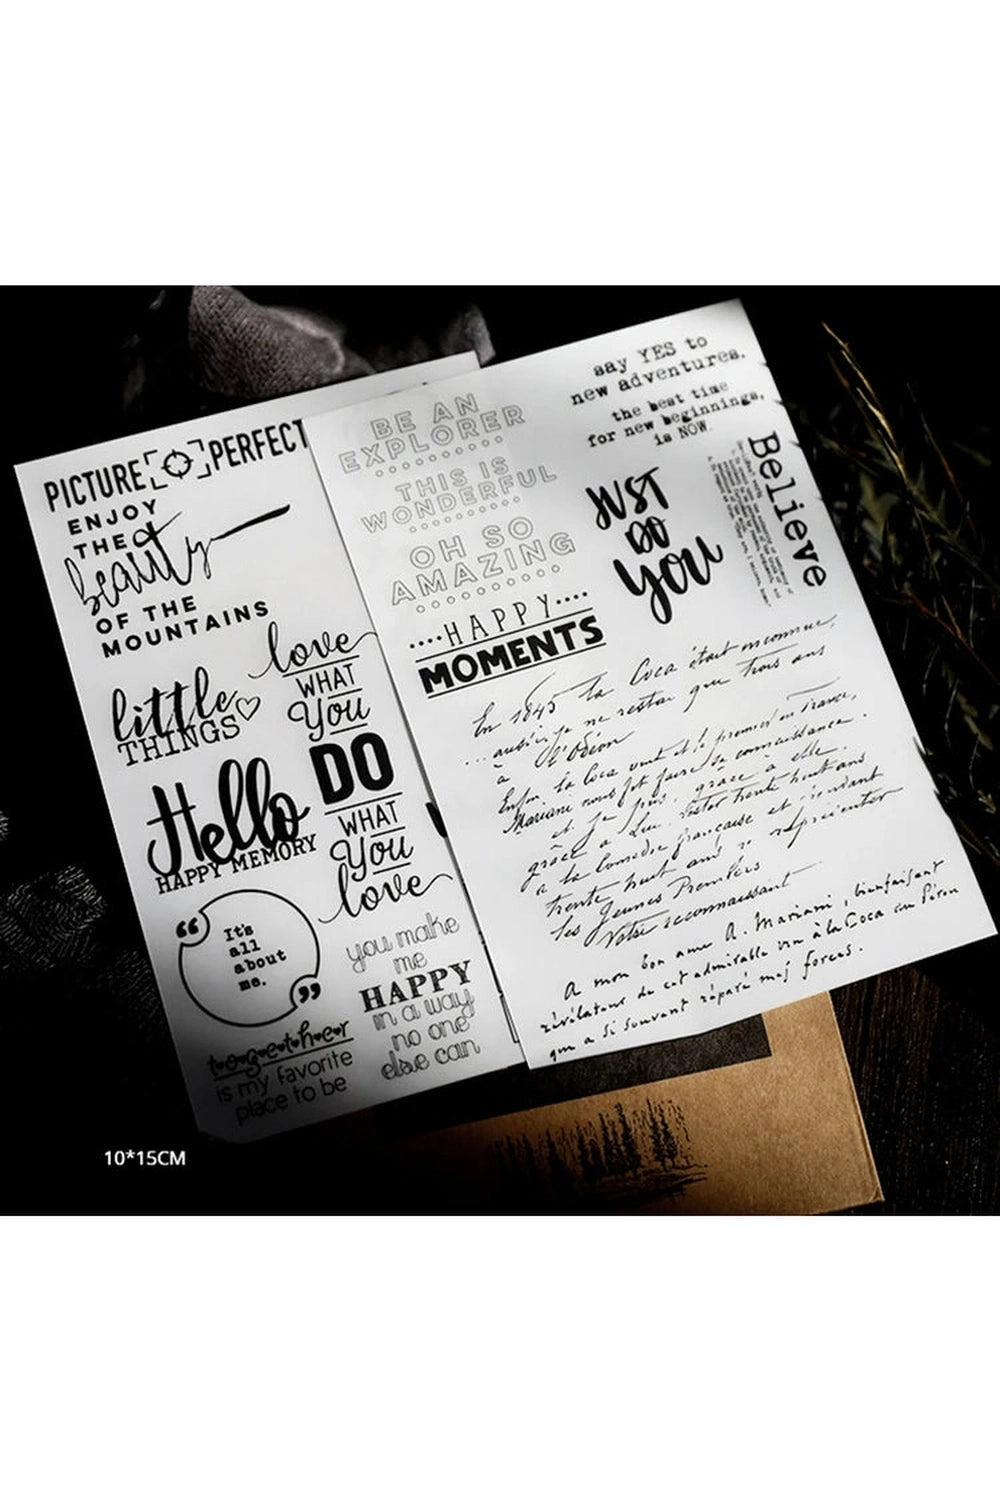 PICTURE PERFECT
ENJOY
THE
beauty
OF THE
MOUNTAINS
little
THINGS
love
WHAT
You
DO
WHAT
You
love
Hello
HAPPY MEMORY
“
It's
all
about
me.
”
you make
me
HAPPY
in a way
no one
else can
together
is my favorite
place to be
BE AN
EXPLORER
THIS IS
WONDERFUL
OH SO
AMAZING
....HAPPY....
MOMENTS
say YES to
new adventures.
the best time
for new beginnings,
is NOW
JUST
DO
you
Believe
En 1845 la Coca était inconnue,
aussi je ne restai que trois ans
à l'Odéon
Enfin la Coca vint et le premier en France,
Mariani nous fit faire sa connaissance.
et je puis, grâce à elle.
grâce à Lui. rester trente huit ans
à la Comédie française et
trente huit ans représenter
les Jeunes Premiers
Votre reconnaissant
A mon bon ami A. Mariani, bienfaisant
révélateur de cet admirable vin à la Coca du Pérou
qui a si souvent réparé mes forces.
10*15CM